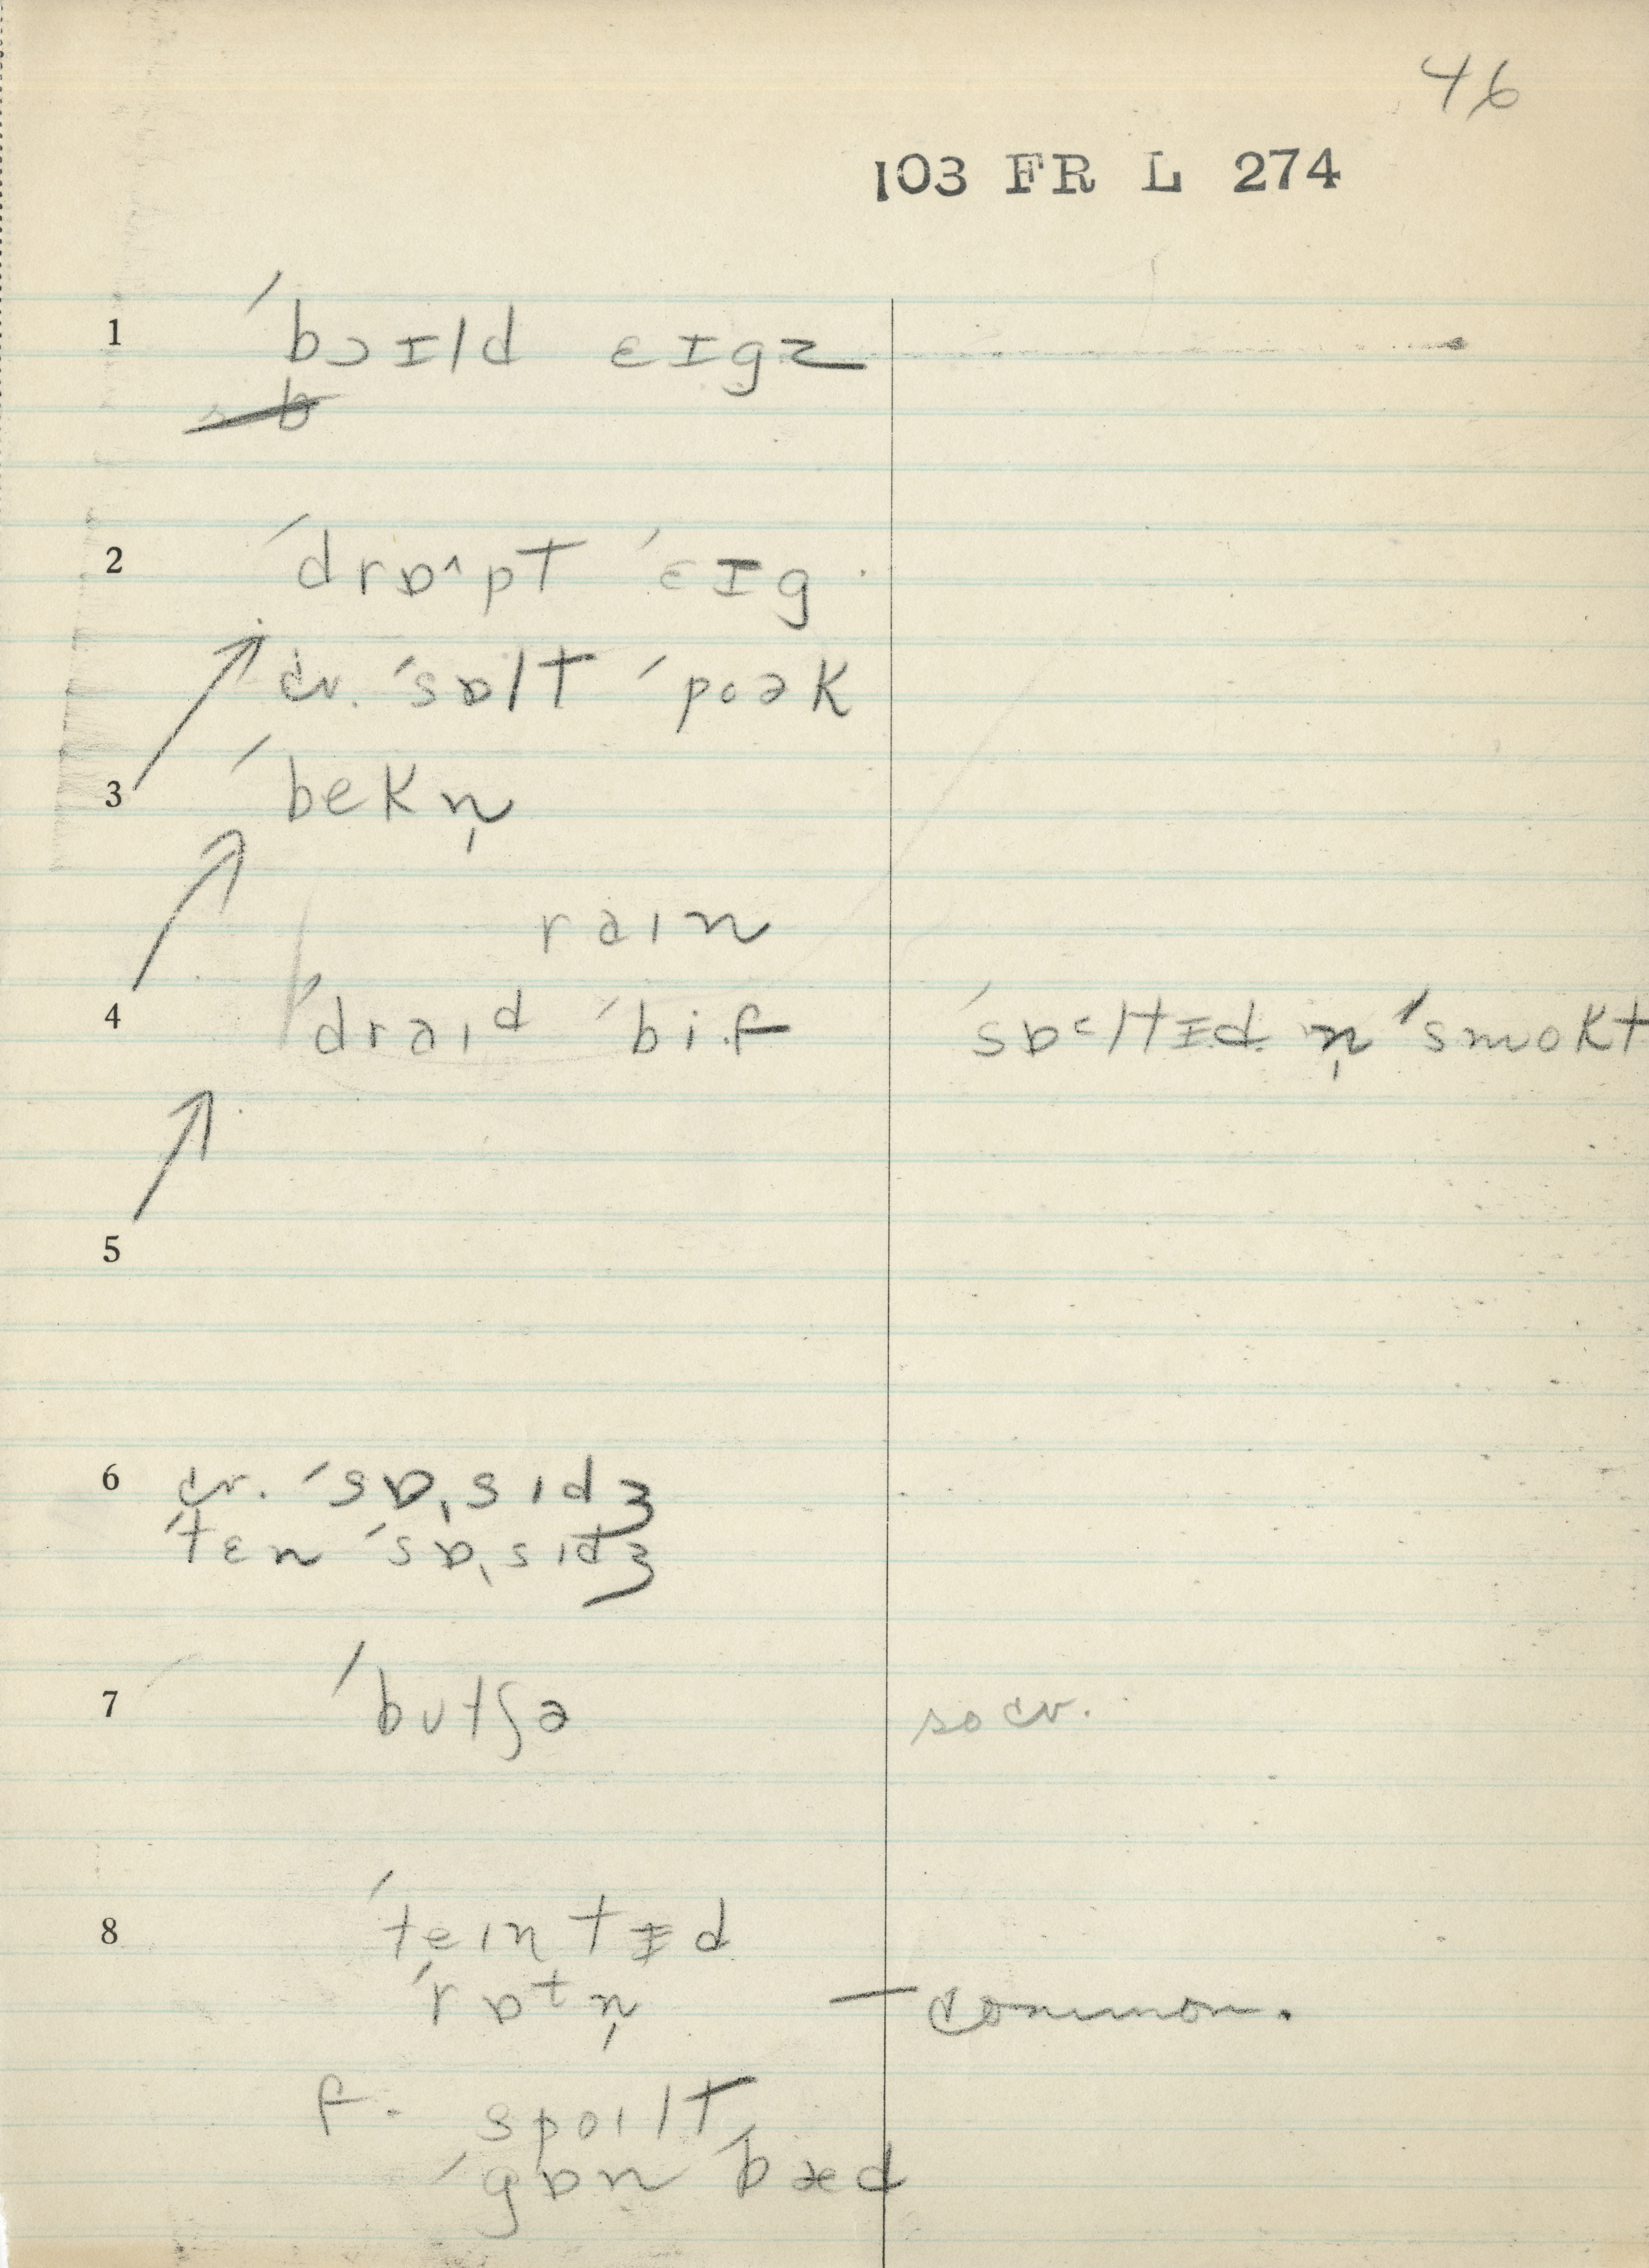 46
103 FR L 274
1 ˈbɔɪld ɛɪgz
2 ˈdrɒ^pt ˈɛɪg
cv. ˈsɒlt ˈpoək
3 ˈbekn̩
raɪn
4 ˈdraɪd ˈbif ˈsɒ˂ltɪd n̩ ˈsmokt
5
6 cv. ˈsɒˌsɪdʒ
ˈtɛn ˈsɒˌsɪdʒ
7 ˈbʊtʃə so cv.
8 ˈteɪntɪd
ˈrɒtn̩ — common.
f. spoɪlt
ˈgɒn ˈbæd